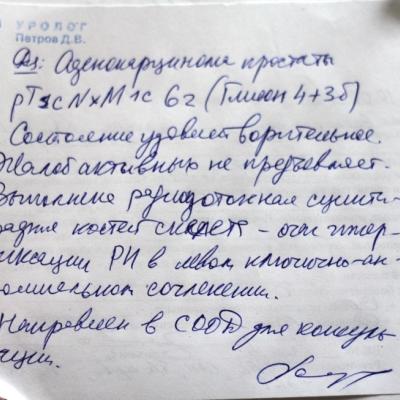 УРОЛОГ
Петров Д.В.
Dz: Аденокарцинома простаты
pT3cNxM1c 6г (Глисон 4+3б)
Состояние удовлетворительное.
Жалоб активных не предъявляет.
Выполнена радиоизотопная сцинти-
графия костей скелета – очаг гипер-
фиксации РН в левом ключично-ак-
ромиальном сочленении.
Направлен в СООД для консуль
тации.